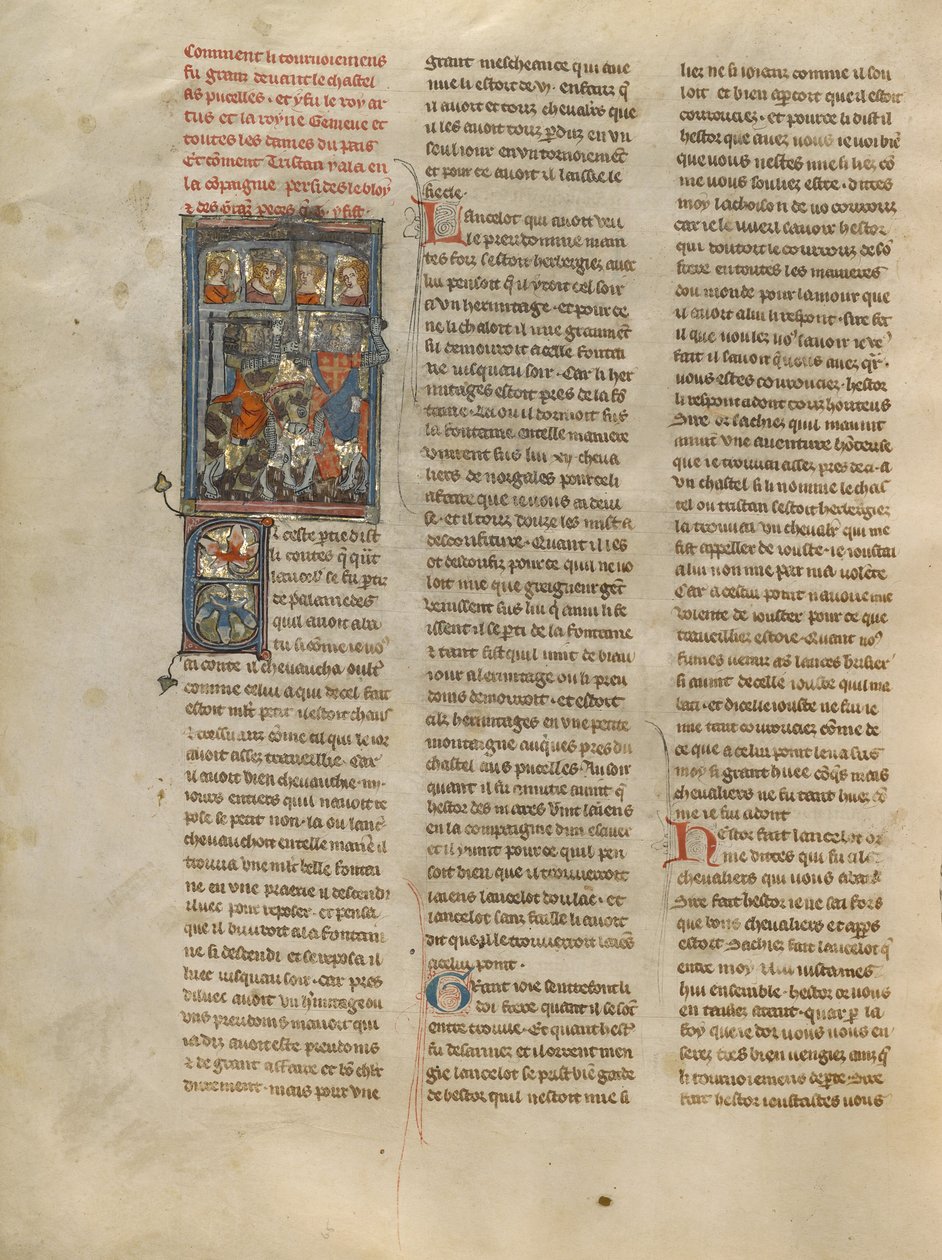 Comment li tournoiemens
fu granz devant le chastel
as pucelles · et y fu le roy ar
tus et la royne Genieve et
toutes les dames du pais
Et cõment Tristan y ala en
la cõpaignie persides le bloy
⁊ des grãz peces q̃ y fist ·
E
r ceste p̱tie dist
li contes q̃ qũt
lancel' se fu p̱tiz
de palamedes
quil avoit aba
tu si cõme ie vo9
ai conte il chevaucha oultr̃
comme celui a qui de cel fait
estoit mlt̃ petit il estoit chaus
⁊ tressuaus cõme cil qui le ior
avoit assez traveillie · Car
il avoit bien chevauchie ·iii·
iours entiers quil navoit re
pose se petit non · la ou lanc̃
chevauchoit en telle maniẽ il
trouva une mlt̃ belle fontai
ne en une praerie il descendi
iluec pour reposer · et pensa
que il buvroit a la fontaine
ne si descendi et se reposa il
luec iusquau soir · car pres
diluec avoit un h̃mitage ou
uns preudoms manoit qui
iadiz avoit este preudoms
⁊ de grant affaire et bõ chlr̃
durement · mais pour une
grant mescheance qui ave
nue li estoit de ·vi· enfanz q̃
il avoit et touz chevalr̃s que
il les avoit touz p̱duz en un
seul iour en un tornoiemẽt
et pour ce avoit il laissie le
siecle ·
Lancelot qui avoit veu
le preudomme main
tes foiz se estoit herbergiez avec
lui pensoit q̃ il yroit cel soir
a un hermitage · et pour ce
ne li chaloit il mie graumẽt
sil demouroit a celle fontai
ne iusquau soir · Car li her
mitages estoit pres de la fõ
taine · La ou il dormoit sus
la fontaine en telle maniere
vinrent sus lui ·xij· cheva
liers de norgales pour celi
affaire que ie vous ai devi
se · et il touz douze les mist a
desconfiture · Quant il les
ot desconfiz pour ce quil ne vo
loit mie que greigneur gẽt
venissent sus lui q̃ anui li fe
issent il se p̱ti de la fontaine
⁊ tant fist quil vint de biau
iour a lermitage ou li preu
doms demouroit · et estoit
cilz hermitages en une petite
montaigne auq̃ues pres du
chastel aus pucelles · Au soir
quant il fu anuitie avint q̃
hestor des mares vint laiens
en la compaignie dun escuier
et il y vint pour ce quil pen
soit bien que il trouveroit
laiens lancelot dou lac · et
lancelot sanz faille li avoit
dit que il le trouveroit laiẽs
a celui point ·
Grant ioie sentrefont li
doi frere quant il se sõt
entre trouve · Et quant hest'
fu desarmez et il orrent men
gie lancelot se prist biẽ garde
de hestor quil nestoit mie si
liez ne si ioieux comme il sou
loit et bien ap̱tcoit que il estoit
courouciez · et pour ce li dist il
hestor que avez vous ie voi biẽ
que vous nestes mie si liez cõ
me vous souliez estre · dittes
moy lachoison de vo courouz
car ie le vueil savoir hestor
qui doutoit le courouz de sõ
frere en toutes les manieres
dou monde pour lamour que
il avoit a lui li respont · sire fet
il que voulez vo9 savoir ie vẽ
fait il savoir q̃ vous avez q̃r
vous estes courouciez · hestor
li respont adont touz honteus
Sire or sachiez quil mavint
anuit une aventure hõteuse
que ie trouvai assez pres de ci · a
un chastel si li nomme le chas
tel ou tristan se estoit herbergiez
la trouvai un chevalr̃ qui me
fist appeller de iouste · ie ioustai
a lui non mie par ma volẽte
Car a celui point navoie mie
volente de iouster pour ce que
traveilliez estoie · Quant no9
fumes venuz as lances brisier
si avint de celle iouste quil ma
bati · et dicelle iouste ne fui ie
mie tant courouciez cõme de
ce que a celui point leva sus
moy si grant huee cõq̃s mais
chevaliers ne fu tant huez cõ
me ie fui adont
Hestor fait lancelot or
me dittes qui fu a le
chevaliers qui vous abati
Sire fait hestor ie ne sai fors
que bons chevaliers et ap̱s
estoit Sachiez fait lancelot q̃
entre moy ⁊ lui iustames
hui ensemble · hestor ce vous
en taisiez atant · quar p̱ la
foy que ie doi vous vous en
serez tres bien vengiez ainz q̃
li tournoiemens dep̱te · Sire
fait hestor ioustastes vous